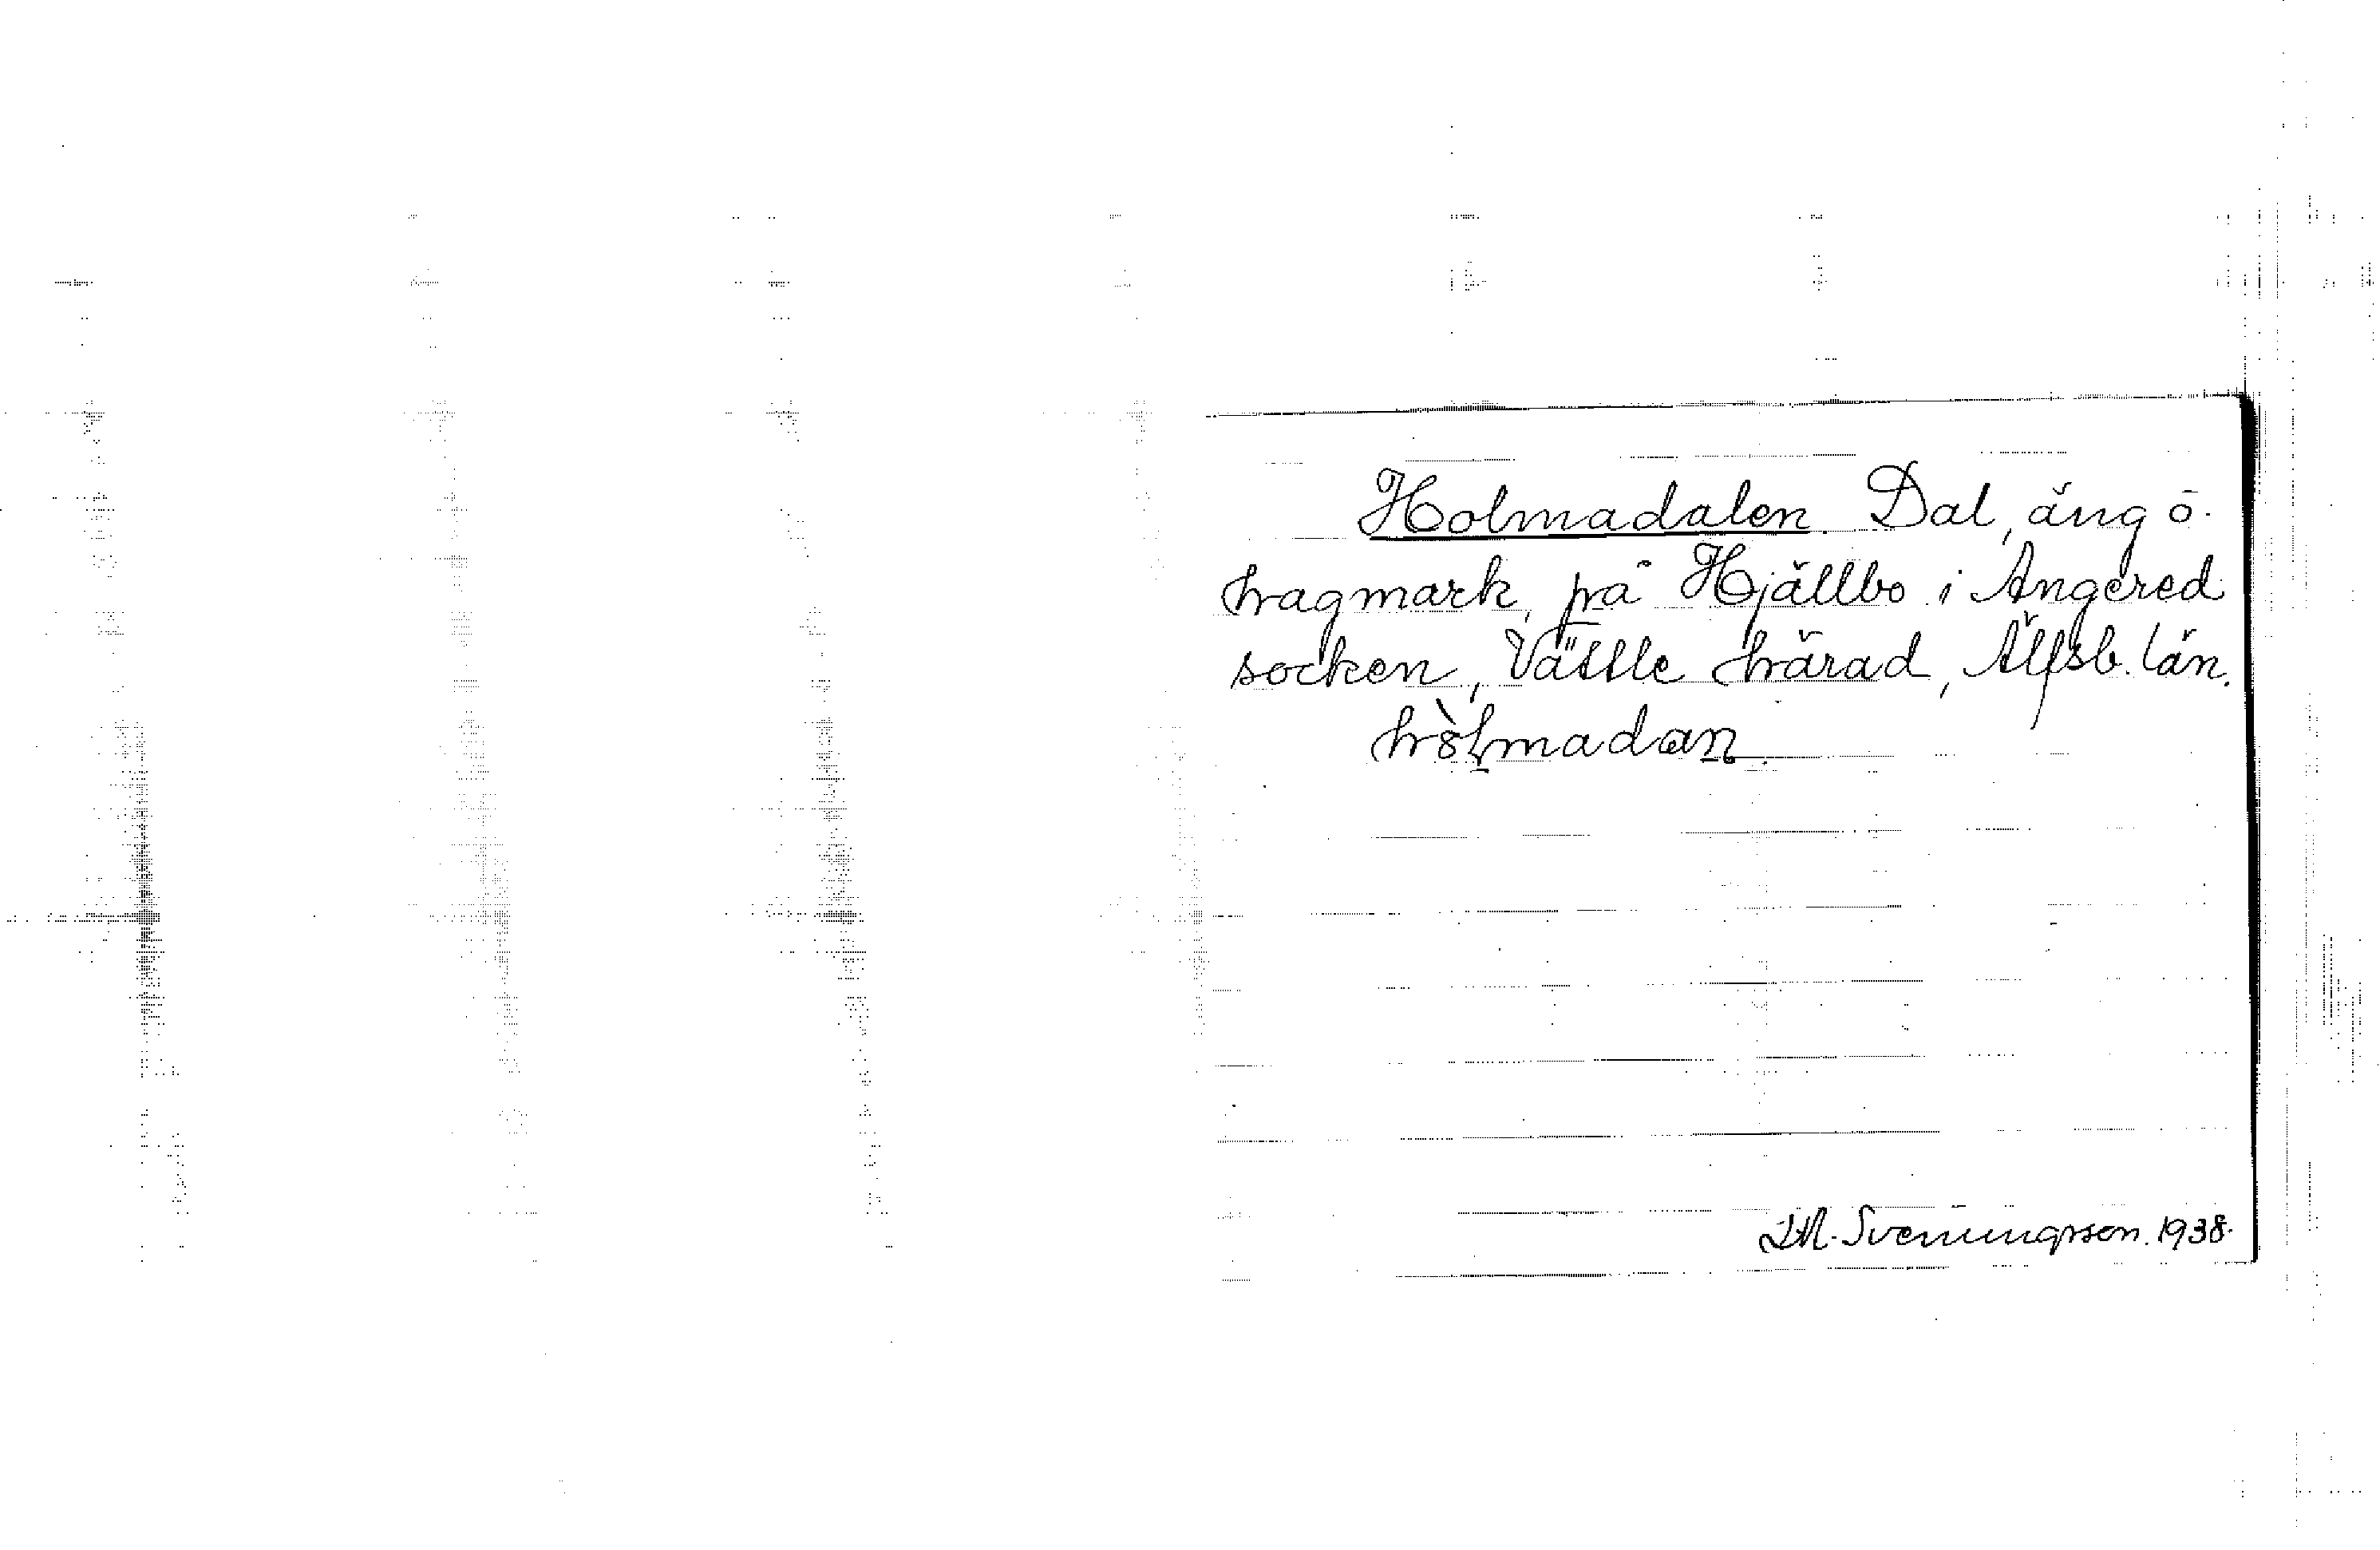 Holmadalen. Dal, äng o.
hagmark, på Hjällbo i Angered
socken, Vättle härad, Älfsb. län.
hòlmadan
Th. Svenningsson. 1938.